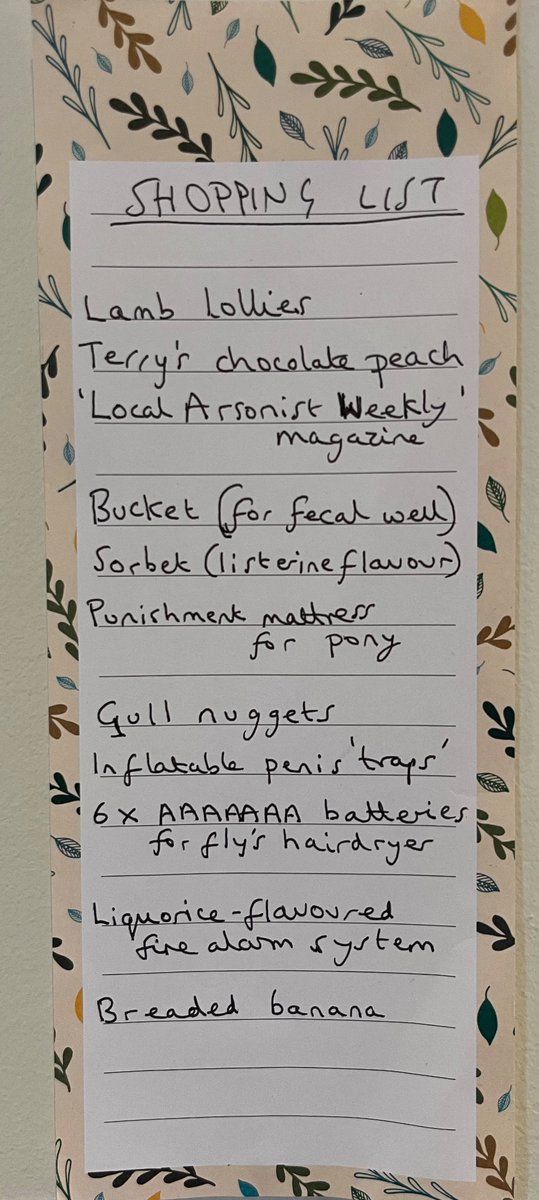 SHOPPING LIST
Lamb Lollies
Terry's chocolate peach
'Local Arsonist Weekly'
magazine
Bucket (for fecal well)
Sorbet (listerine flavour)
Punishment mattress
for pony
Gull nuggets
Inflatable penis 'traps'
6 x AAAAAAA batteries
for fly's hairdryer
Liquorice-flavoured
fire alarm system
Breaded banana